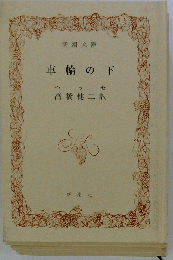 新潮文庫
車輪の下
ヘッセ
高橋健二訳
新潮社